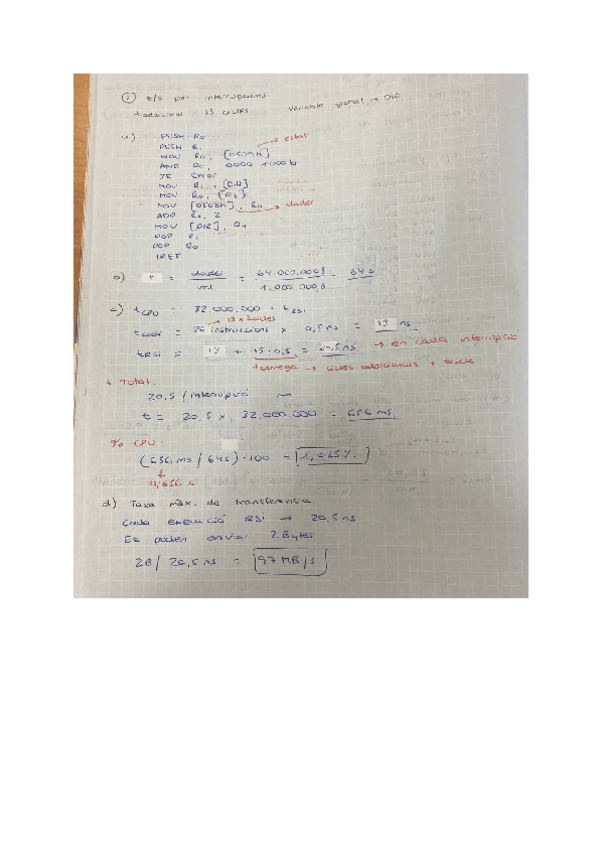 ② E/S per interrupcions
t addicional = 15 cicles variable global → DIR
a) PUSH R0
PUSH R1
MOV R0, [0500h] → estat
AND R0, 0000 1000b
JE Error
MOV R1, [DIR]
MOV R0, [R1]
MOV [0508h], R0 → dades
ADD R1, 2
MOV [DIR], R1
POP R1
POP R0
IRET
b) t = dades / vel = 64.000.000B / 1.000.000B = 64s
c) tCPU = 32.000.000 · tRSI
→ 13 x 2 cicles
= 26 instruccions x 0,5 ns = 13 ns
tRSI = 13 + 15·0,5 = 20,5 ns → en cada interrupció
→ cicles addicionals + tcicle
↳ Total:
20,5 / interrupció
t = 20,5 x 32.000.000 = 656 ms
% CPU:
(656 ms / 64s) · 100 = 1,025%
↓
0,656 s
d) Taxa màx. de transferència
Cada execució RSI → 20,5 ns
Es poden enviar 2 Bytes
2B / 20,5 ns = 97 MB/s